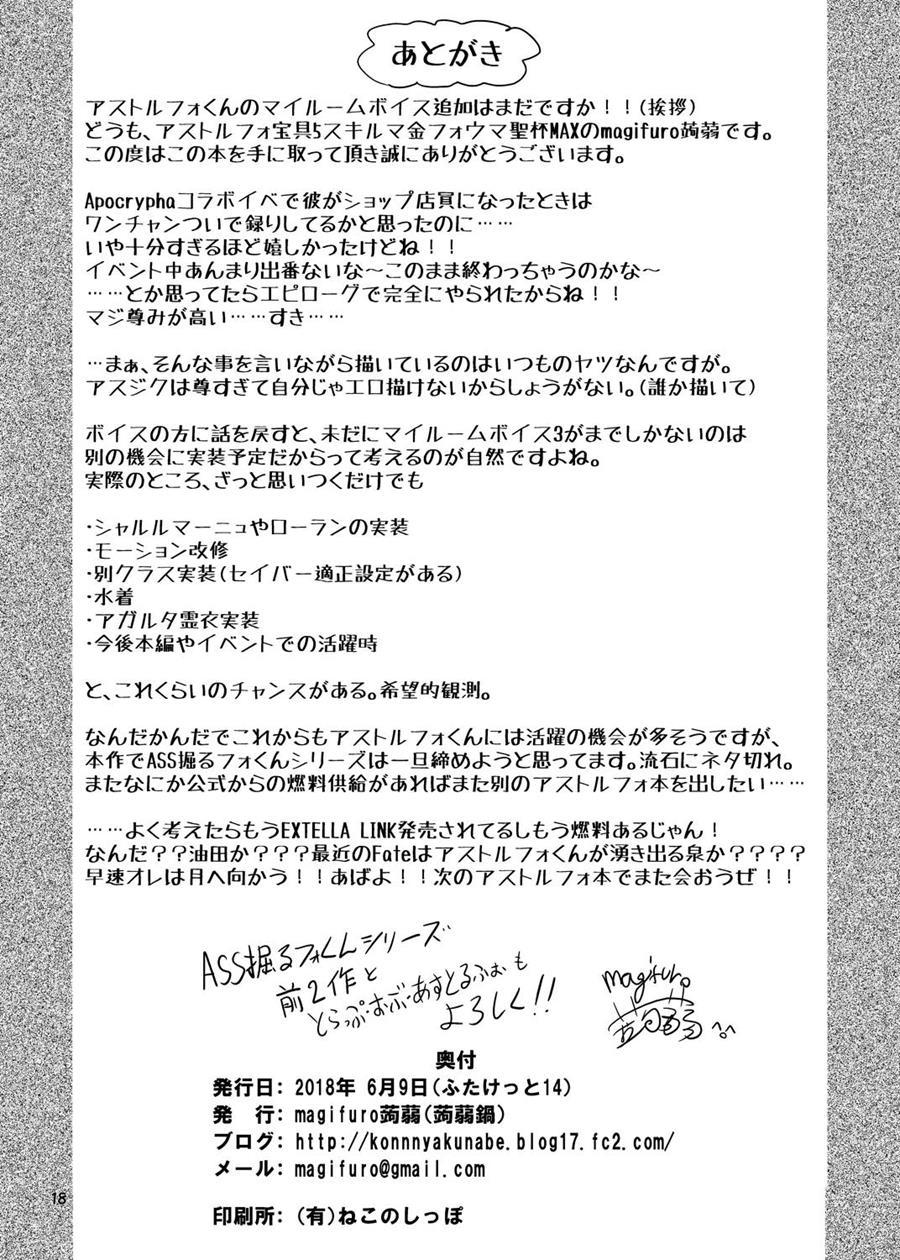 あとがき
アストルフォくんのマイルームボイス追加はまだですか！！(挨拶)
どうも、アストルフォ宝具5スキルマ金フォウマ聖杯MAXのmagifuro蒟蒻です。
この度はこの本を手に取って頂き誠にありがとうございます。
Apocryphaコラボイベで彼がショップ店員になったときは
ワンチャンついで録りしてるかと思ったのに……
いや十分すぎるほど嬉しかったけどね！！
イベント中あんまり出番ないな～このまま終わっちゃうのかな～
……とか思ってたらエピローグで完全にやられたからね！！
マジ尊みが高い……すき……
…まぁ、そんな事を言いながら描いているのはいつものヤツなんですが。
アスジクは尊すぎて自分じゃエロ描けないからしょうがない。(誰か描いて)
ボイスの方に話を戻すと、未だにマイルームボイス3がまでしかないのは
別の機会に実装予定だからって考えるのが自然ですよね。
実際のところ、ざっと思いつくだけでも
・シャルルマーニュやローランの実装
・モーション改修
・別クラス実装(セイバー適正設定がある)
・水着
・アガルタ霊衣実装
・今後本編やイベントでの活躍時
と、これくらいのチャンスがある。希望的観測。
なんだかんだでこれからもアストルフォくんには活躍の機会が多そうですが、
本作でASS掘るフォくんシリーズは一旦締めようと思ってます。流石にネタ切れ。
またなにか公式からの燃料供給があればまた別のアストルフォ本を出したい……
……よく考えたらもうEXTELLA LINK発売されてるしもう燃料あるじゃん！
なんだ？？油田か？？？最近のFateはアストルフォくんが湧き出る泉か？？？？
早速オレは月へ向かう！！あばよ！！次のアストルフォ本でまた会おうぜ！！
ASS掘るフォくんシリーズ
前2作と
とらぷ・おぶ・あすとるふぉも
よろしく!!
magifuro
蒟蒻
奥付
発行日: 2018年 6月9日(ふたけっと14)
発　行: magifuro蒟蒻(蒟蒻鍋)
ブログ: http://konnnyakunabe.blog17.fc2.com/
メール: magifuro@gmail.com
印刷所: (有)ねこのしっぽ
18